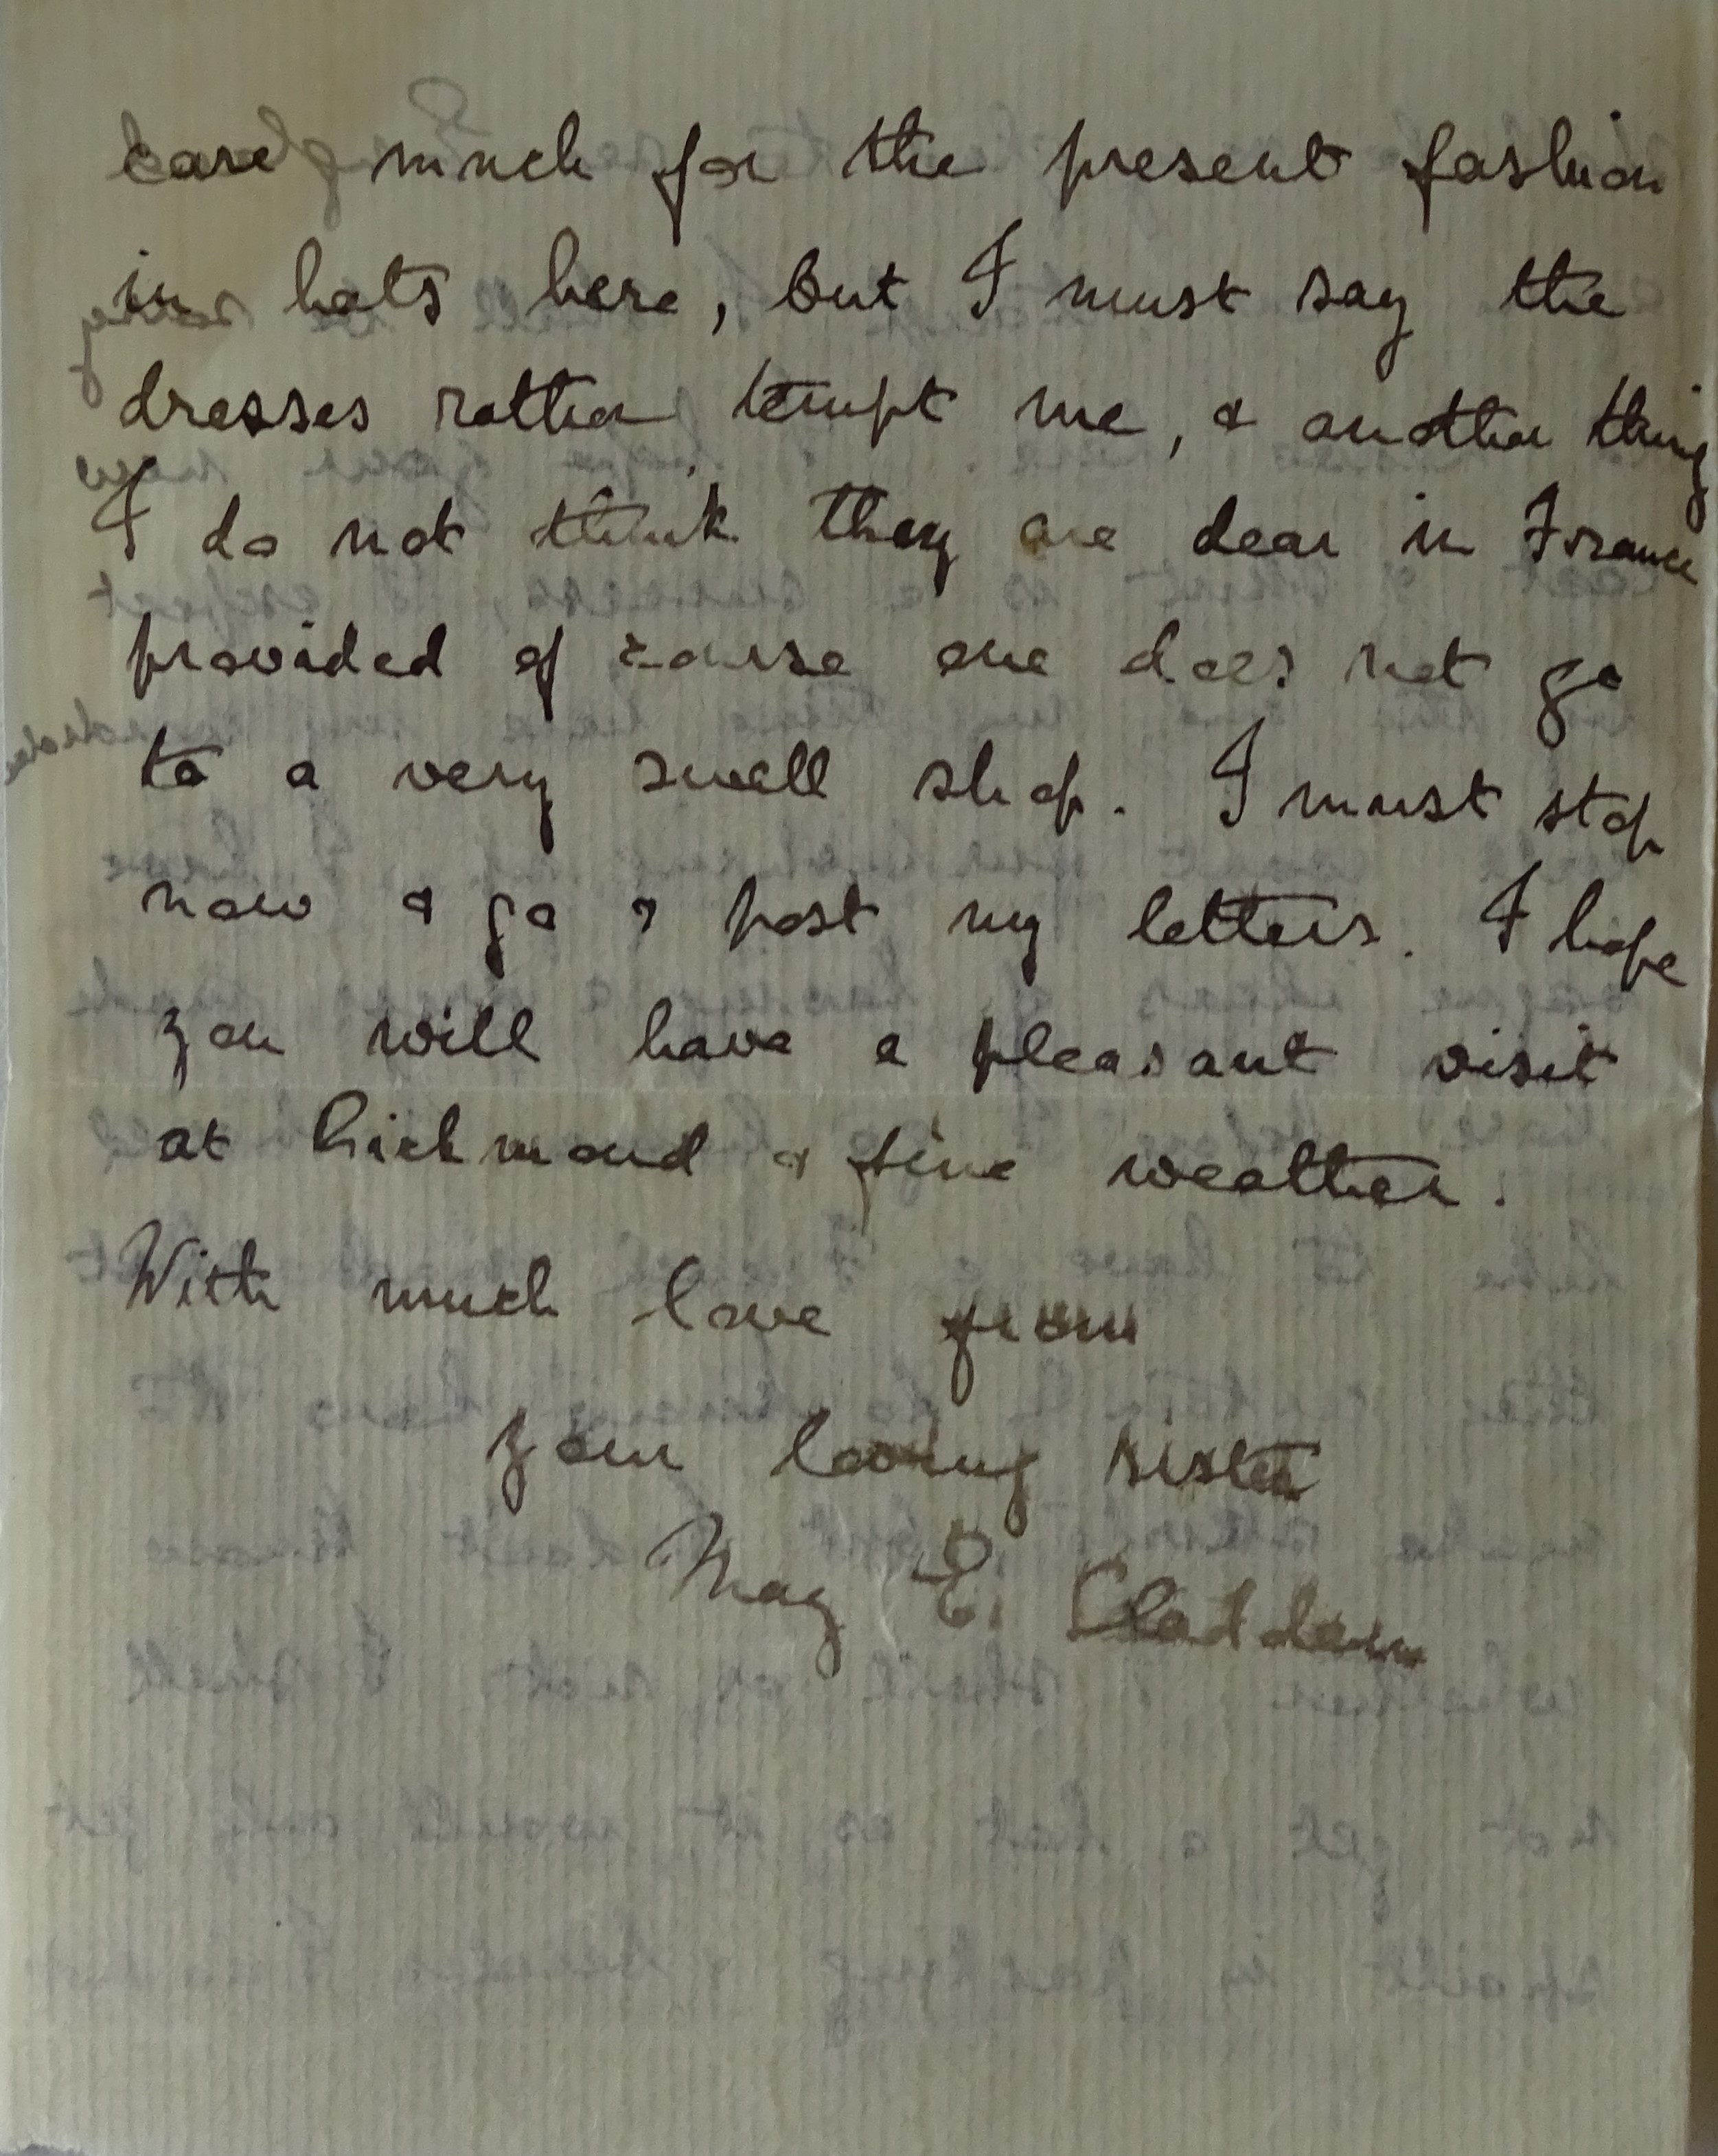 care much for the present fashion
in hats here, but I must say the
dresses rather tempt me, & another thing
I do not think they are dear in France
provided of course one does not go
to a very swell shop. I must stop
now & go & post my letters. I hope
you will have a pleasant visit
at Richmond & fine weather.
With much love from
your loving sister
May E.